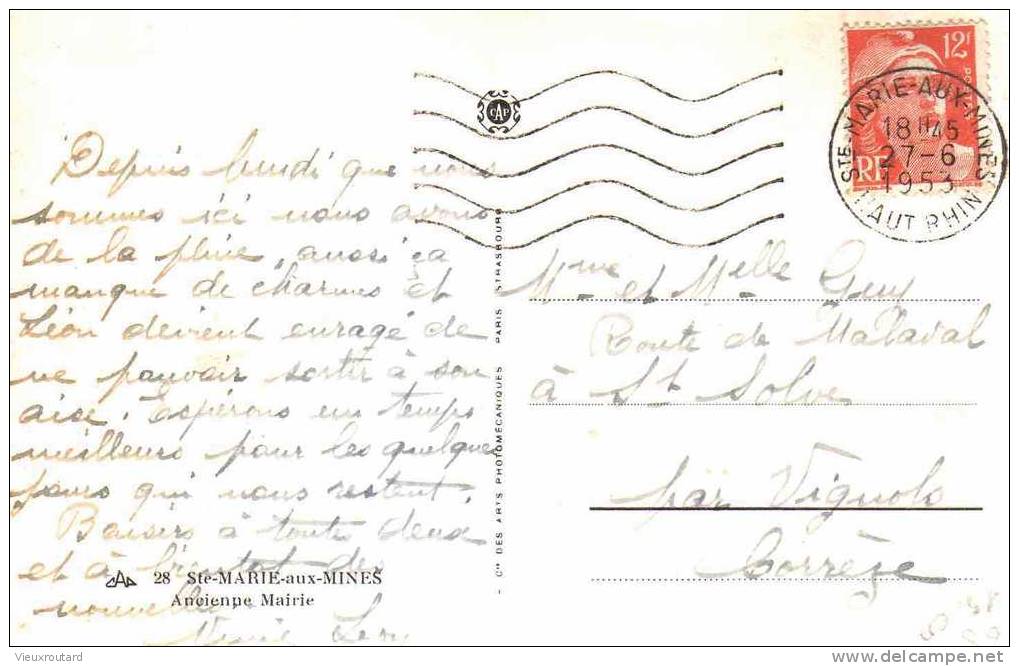 12F
POSTES
RF
STE-MARIE-AUX-MINES
18H45
27-6
1953
HAUT RHIN
CAP
Depuis lundi que nous
sommes ici nous avons
de la pluie, aussi ça
manque de charmes et
Léon devient enragé de
ne pouvoir sortir à son
aise. Espérons un temps
meilleurs pour les quelques
jours qui nous restent.
Baisers à toute deux
et à bientôt des
nouvelles
Léon
CIE DES ARTS PHOTOMÉCANIQUES PARIS STRASBOURG
Mme et Melle Guy
Route de Malaval
à St Solve
par Vignols
Corrèze
CAP 28 Ste-MARIE-aux-MINES
Ancienne Mairie
Vieuxroutard